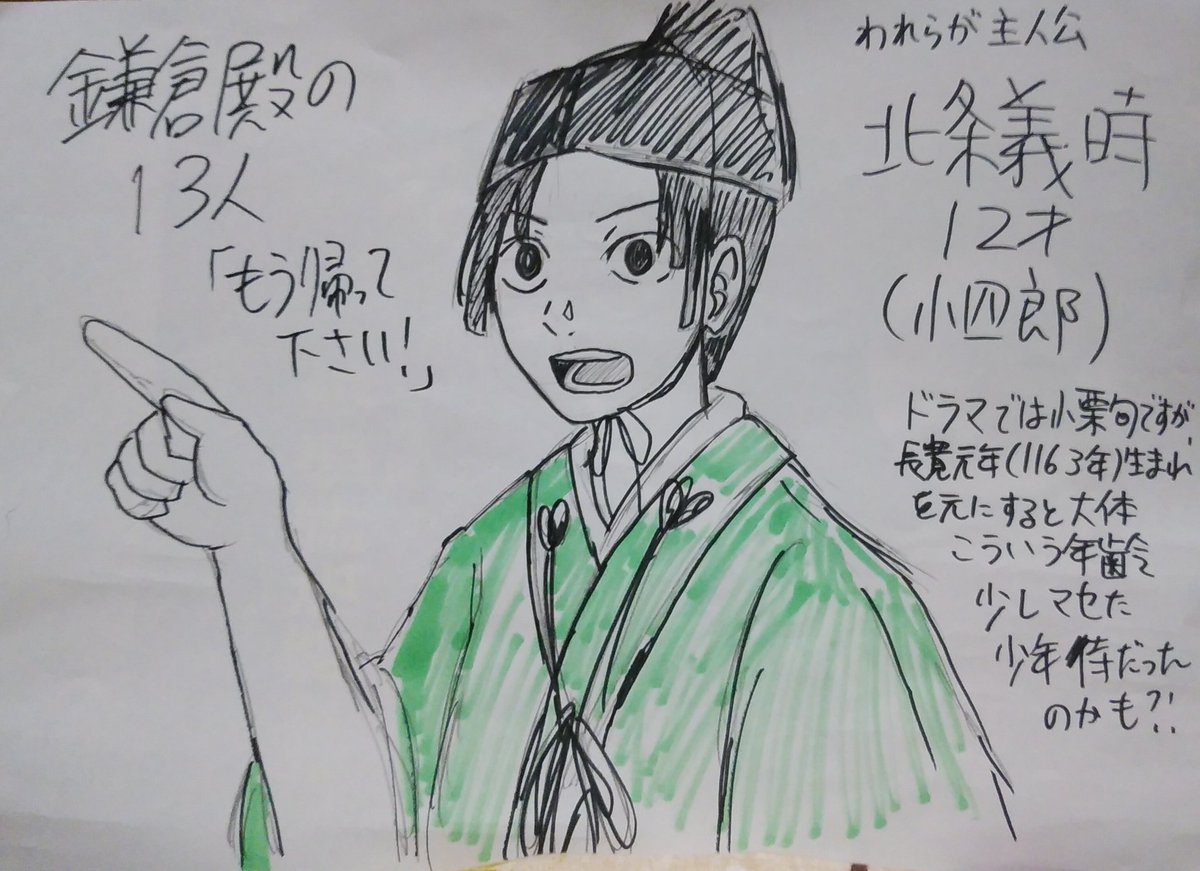 鎌倉殿の
13人
「もう帰って
下さい!」
われらが主人公
北条義時
12才
(小四郎)
ドラマでは小栗旬ですが、
長寛元年(1163年)生まれ
を元にすると大体
こういう年齢
少しマセた
少年侍だった
のかも?!